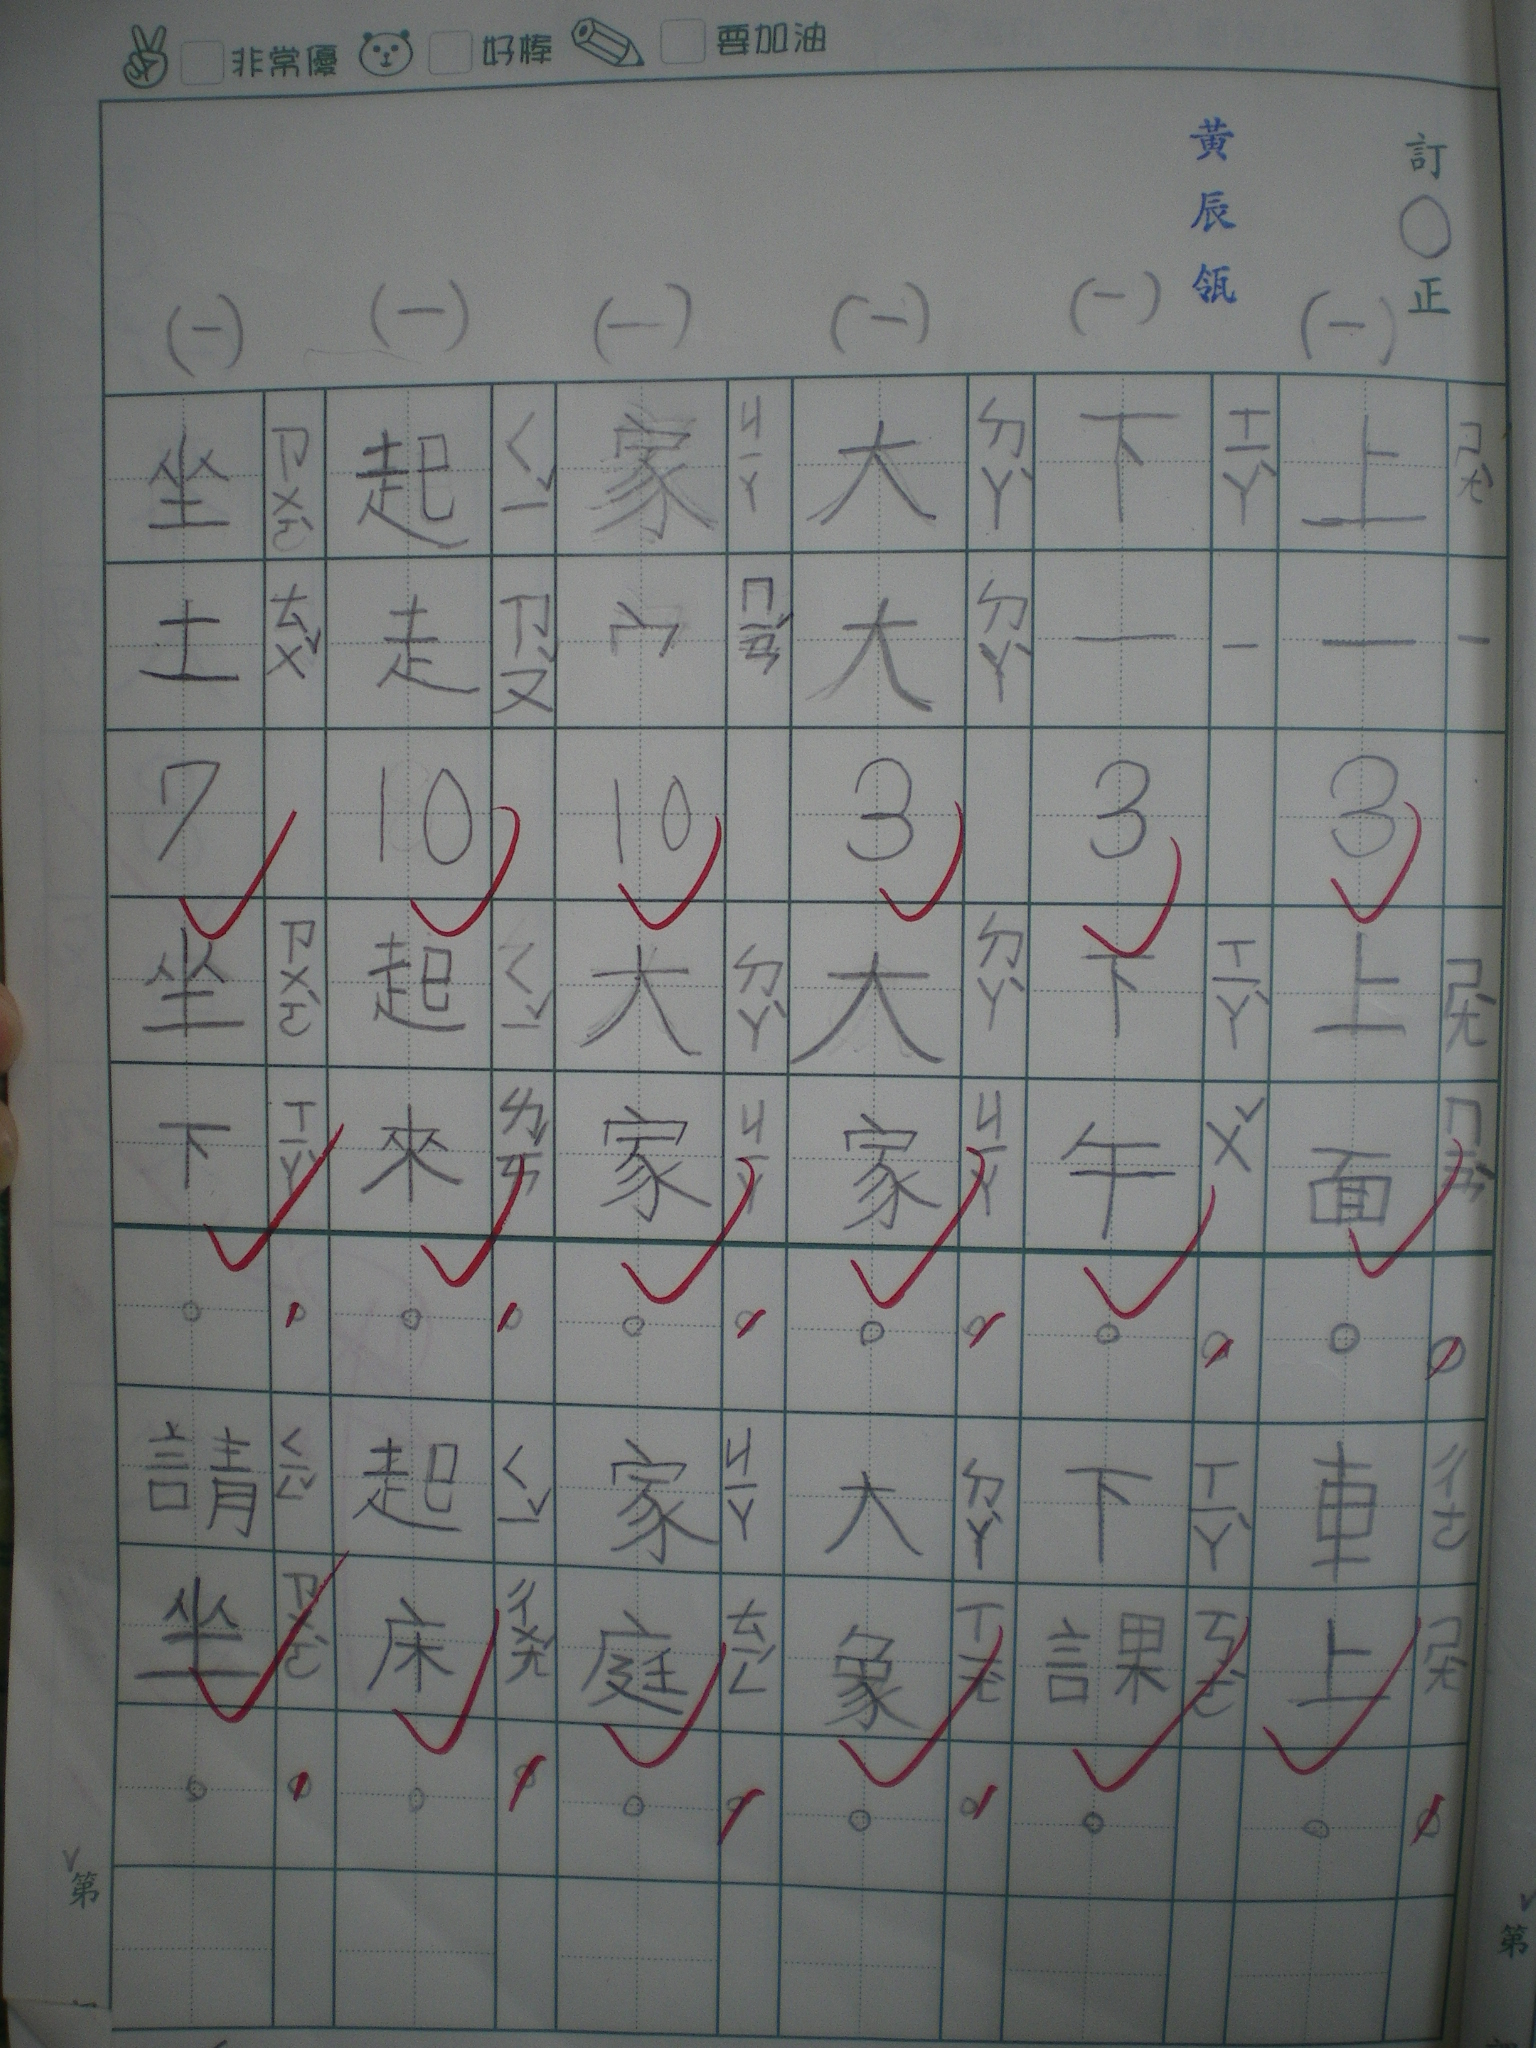 非常優 好棒 要加油
訂○正
黃辰瓴
(一)
上ㄕㄤˋ
一ㄧ
3
上ㄕㄤˋ面ㄇㄧㄢˋ。
車ㄔㄜ上ㄕㄤˋ。
(一)
下ㄒㄧㄚˋ
一ㄧ
3
下ㄒㄧㄚˋ午ㄨˇ。
下ㄒㄧㄚˋ課ㄎㄜˋ。
(一)
大ㄉㄚˋ
大ㄉㄚˋ
3
大ㄉㄚˋ家ㄐㄧㄚ。
大ㄉㄚˋ象ㄒㄧㄤˋ。
(一)
家ㄐㄧㄚ
宀ㄇㄧㄢˊ
10
大ㄉㄚˋ家ㄐㄧㄚ。
家ㄐㄧㄚ庭ㄊㄧㄥˊ。
(一)
起ㄑㄧˇ
走ㄗㄡˇ
10
起ㄑㄧˇ來ㄌㄞˊ。
起ㄑㄧˇ床ㄔㄨㄤˊ。
(一)
坐ㄗㄨㄛˋ
土ㄊㄨˇ
7
坐ㄗㄨㄛˋ下ㄒㄧㄚˋ。
請ㄑㄧㄥˇ坐ㄗㄨㄛˋ。
第
第